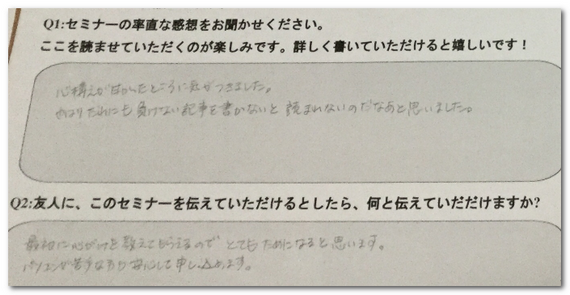 Q1:セミナーの率直な感想をお聞かせください。
ここを読ませていただくのが楽しみです。詳しく書いていただけると嬉しいです！
心構えが甘かったところに気がつきました。
やはりだれにも負けない記事を書かないと読まれないのだなあと思いました。
Q2:友人に、このセミナーを伝えていただけるとしたら、何と伝えていだだけますか?
最初に心がけを教えてもらえるので とてもためになると思います。
パソコンが苦手な方も安心して申し込めます。